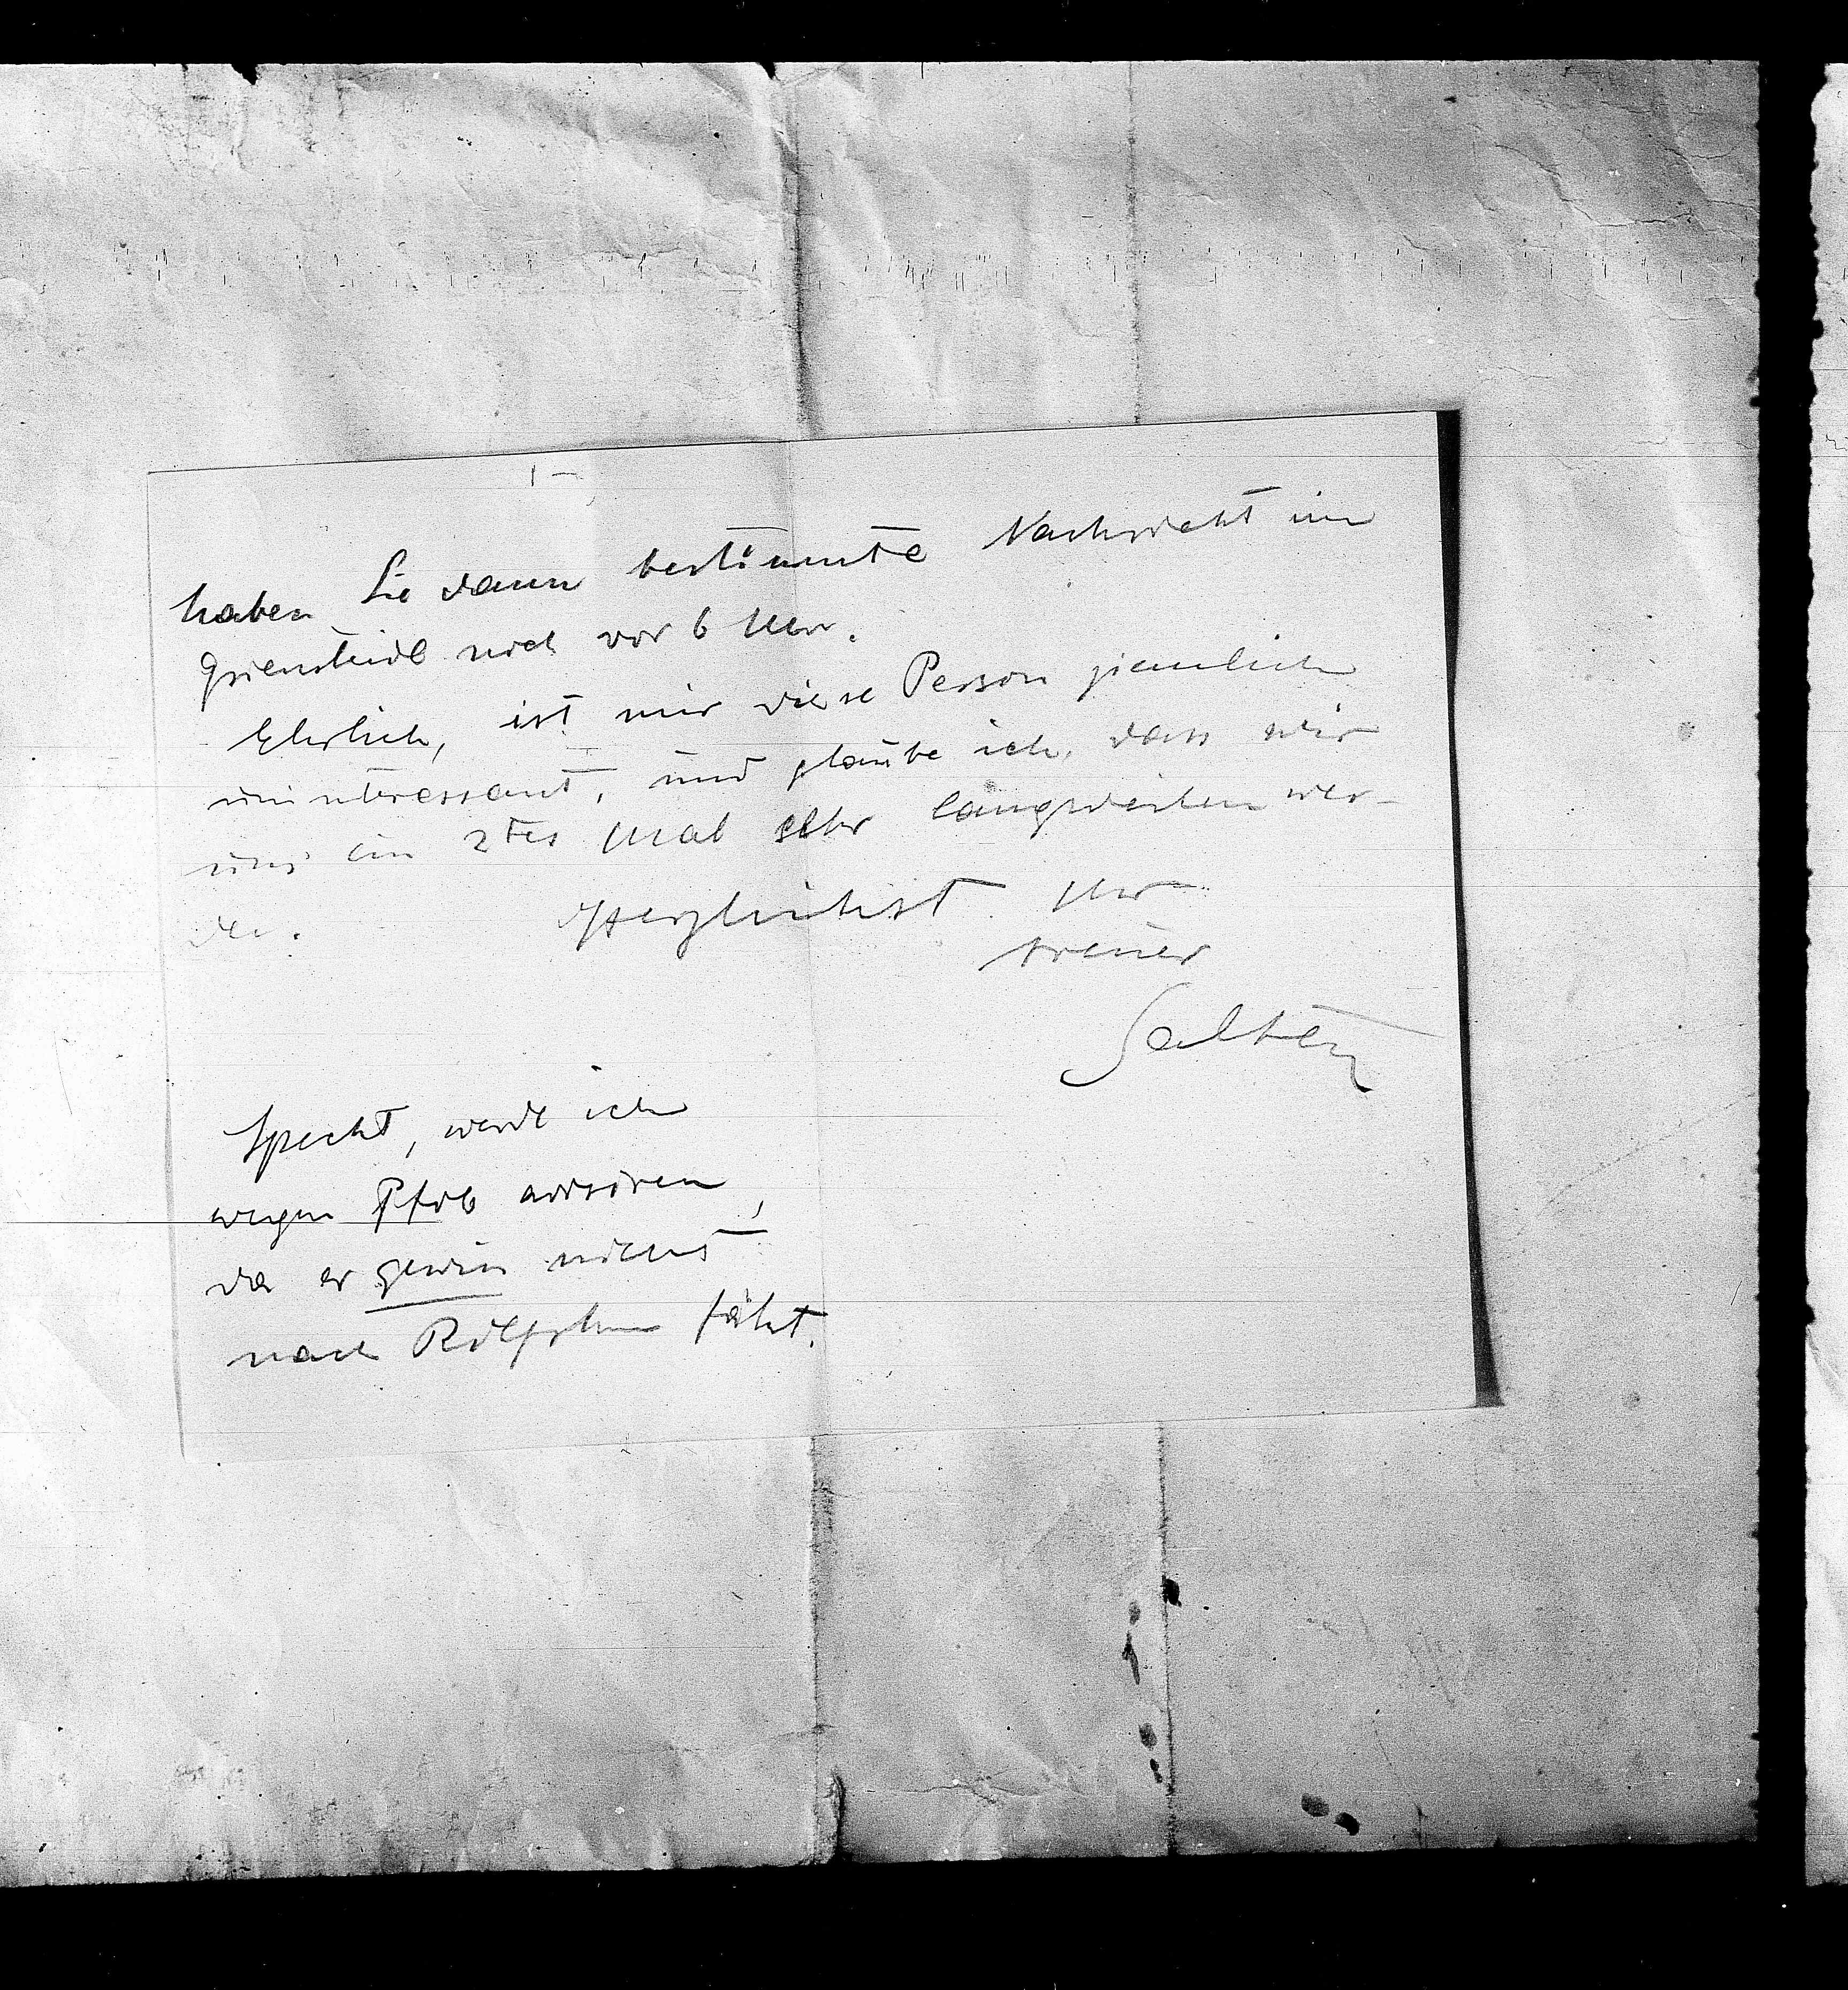 haben Sie dann bestimmte Nachricht im
Griensteidl noch vor 6 Uhr.
Ehrlich, ist mir diese Person ziemlich
uninteressant, und glaube ich, dass wir
uns ein 2tes Mal sehr langweilen wer-
den.
Herzlichst Ihr
treuer
Salten
Specht, werde ich
wegen Pfob avisiren,
da er gewiss nicht
nach fährt.